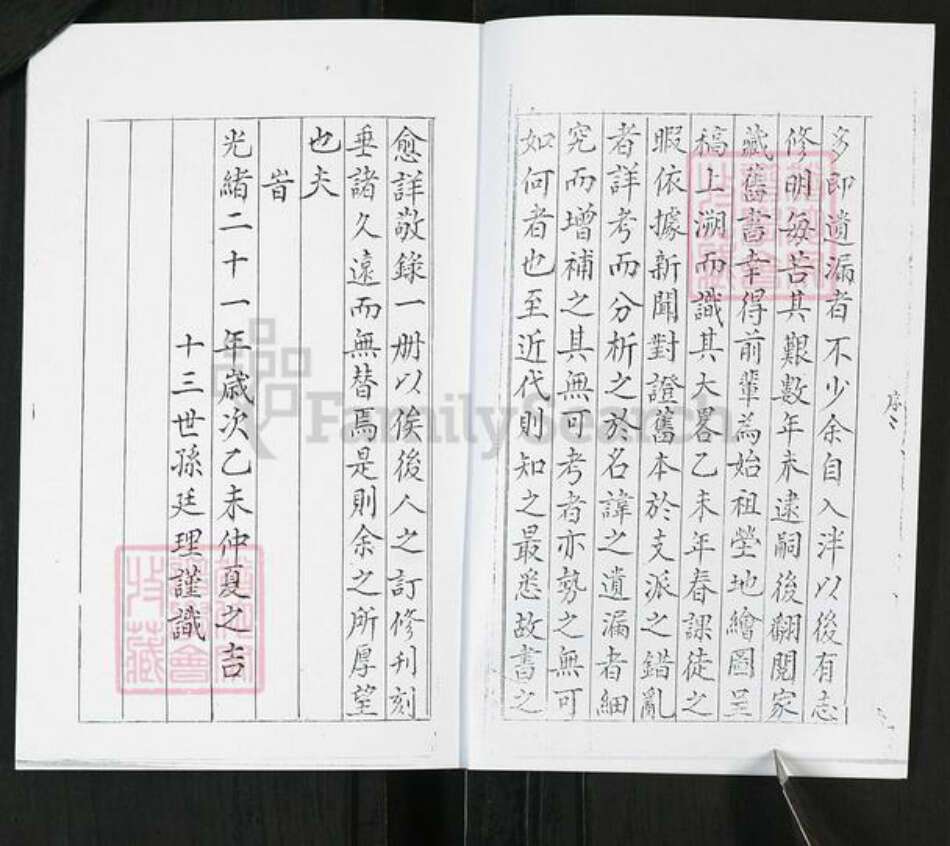 多即遺漏者不少余自入泮以後有志
修明每苦其艱數年未逮嗣後翻閱家
藏舊書幸得前輩為始祖塋地繪圖呈
稿上溯而識其大畧乙未年春課徒之
暇依據新聞對證舊本於支派之錯亂
者詳考而分析之於名諱之遺漏者細
究而增補之其無可考者亦勢之無可
如何者也至近代則知之最悉故書之
愈詳敬錄一册以俟後人之訂修刊刻
垂諸久遠而無替焉是則余之所厚望
也夫
旹
光緒二十一年歲次乙未仲夏之吉
十三世孫廷理謹識
序
FamilySearch